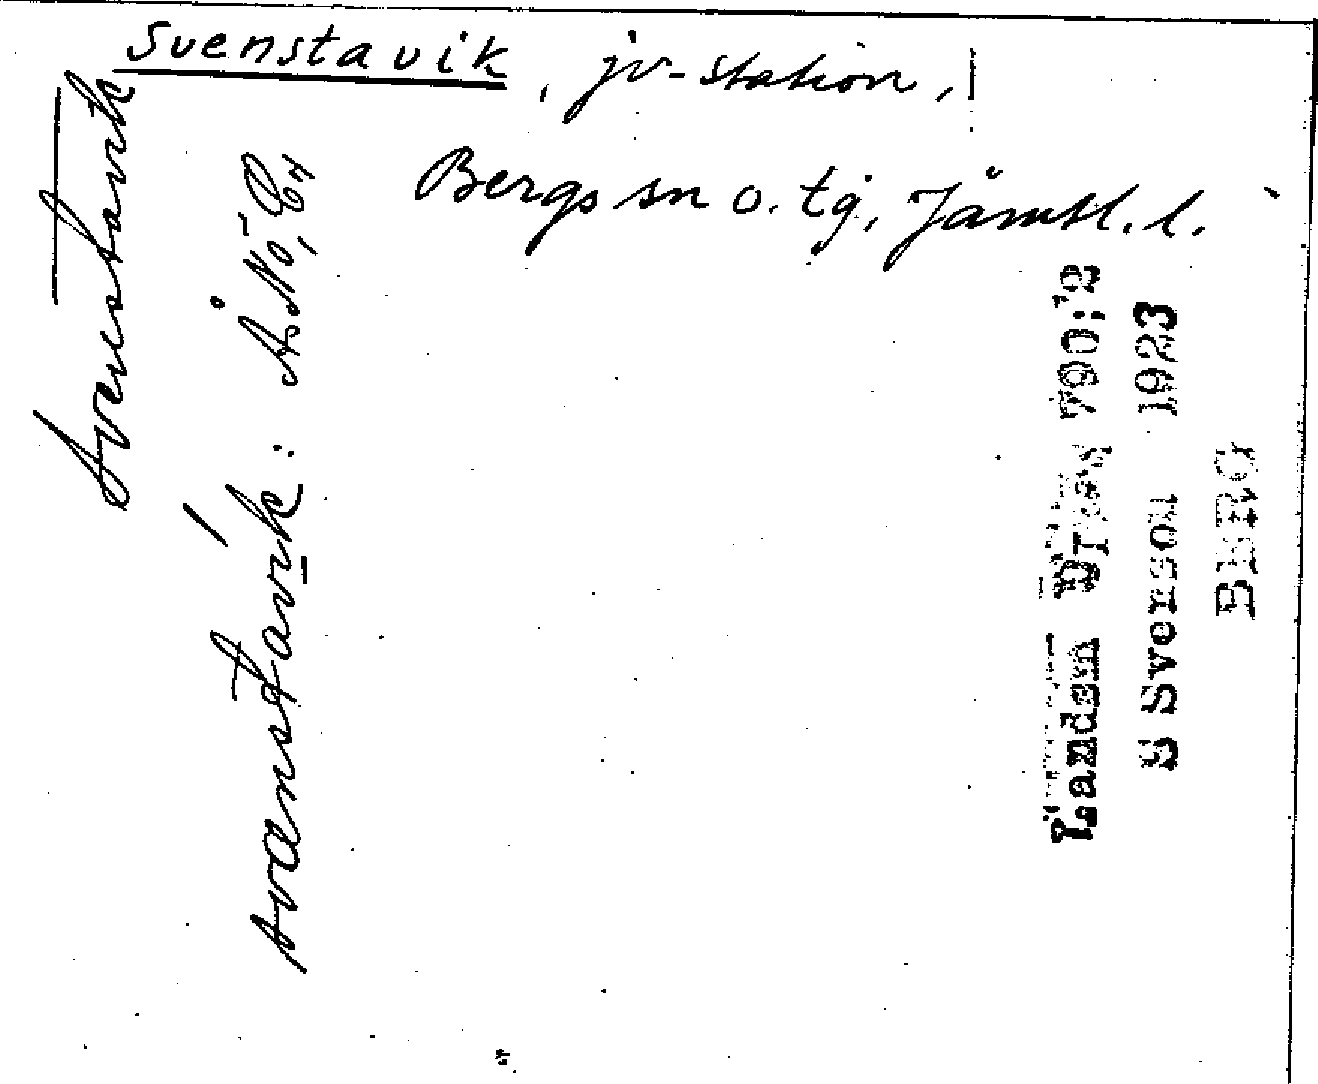 Svenstavik, jv-station,
Bergs sn o. tg, Jämtl. l.
Svenstavik
svanstavik: Å. Nö,
Landsm 790:2
S Svenson 1923
BERG